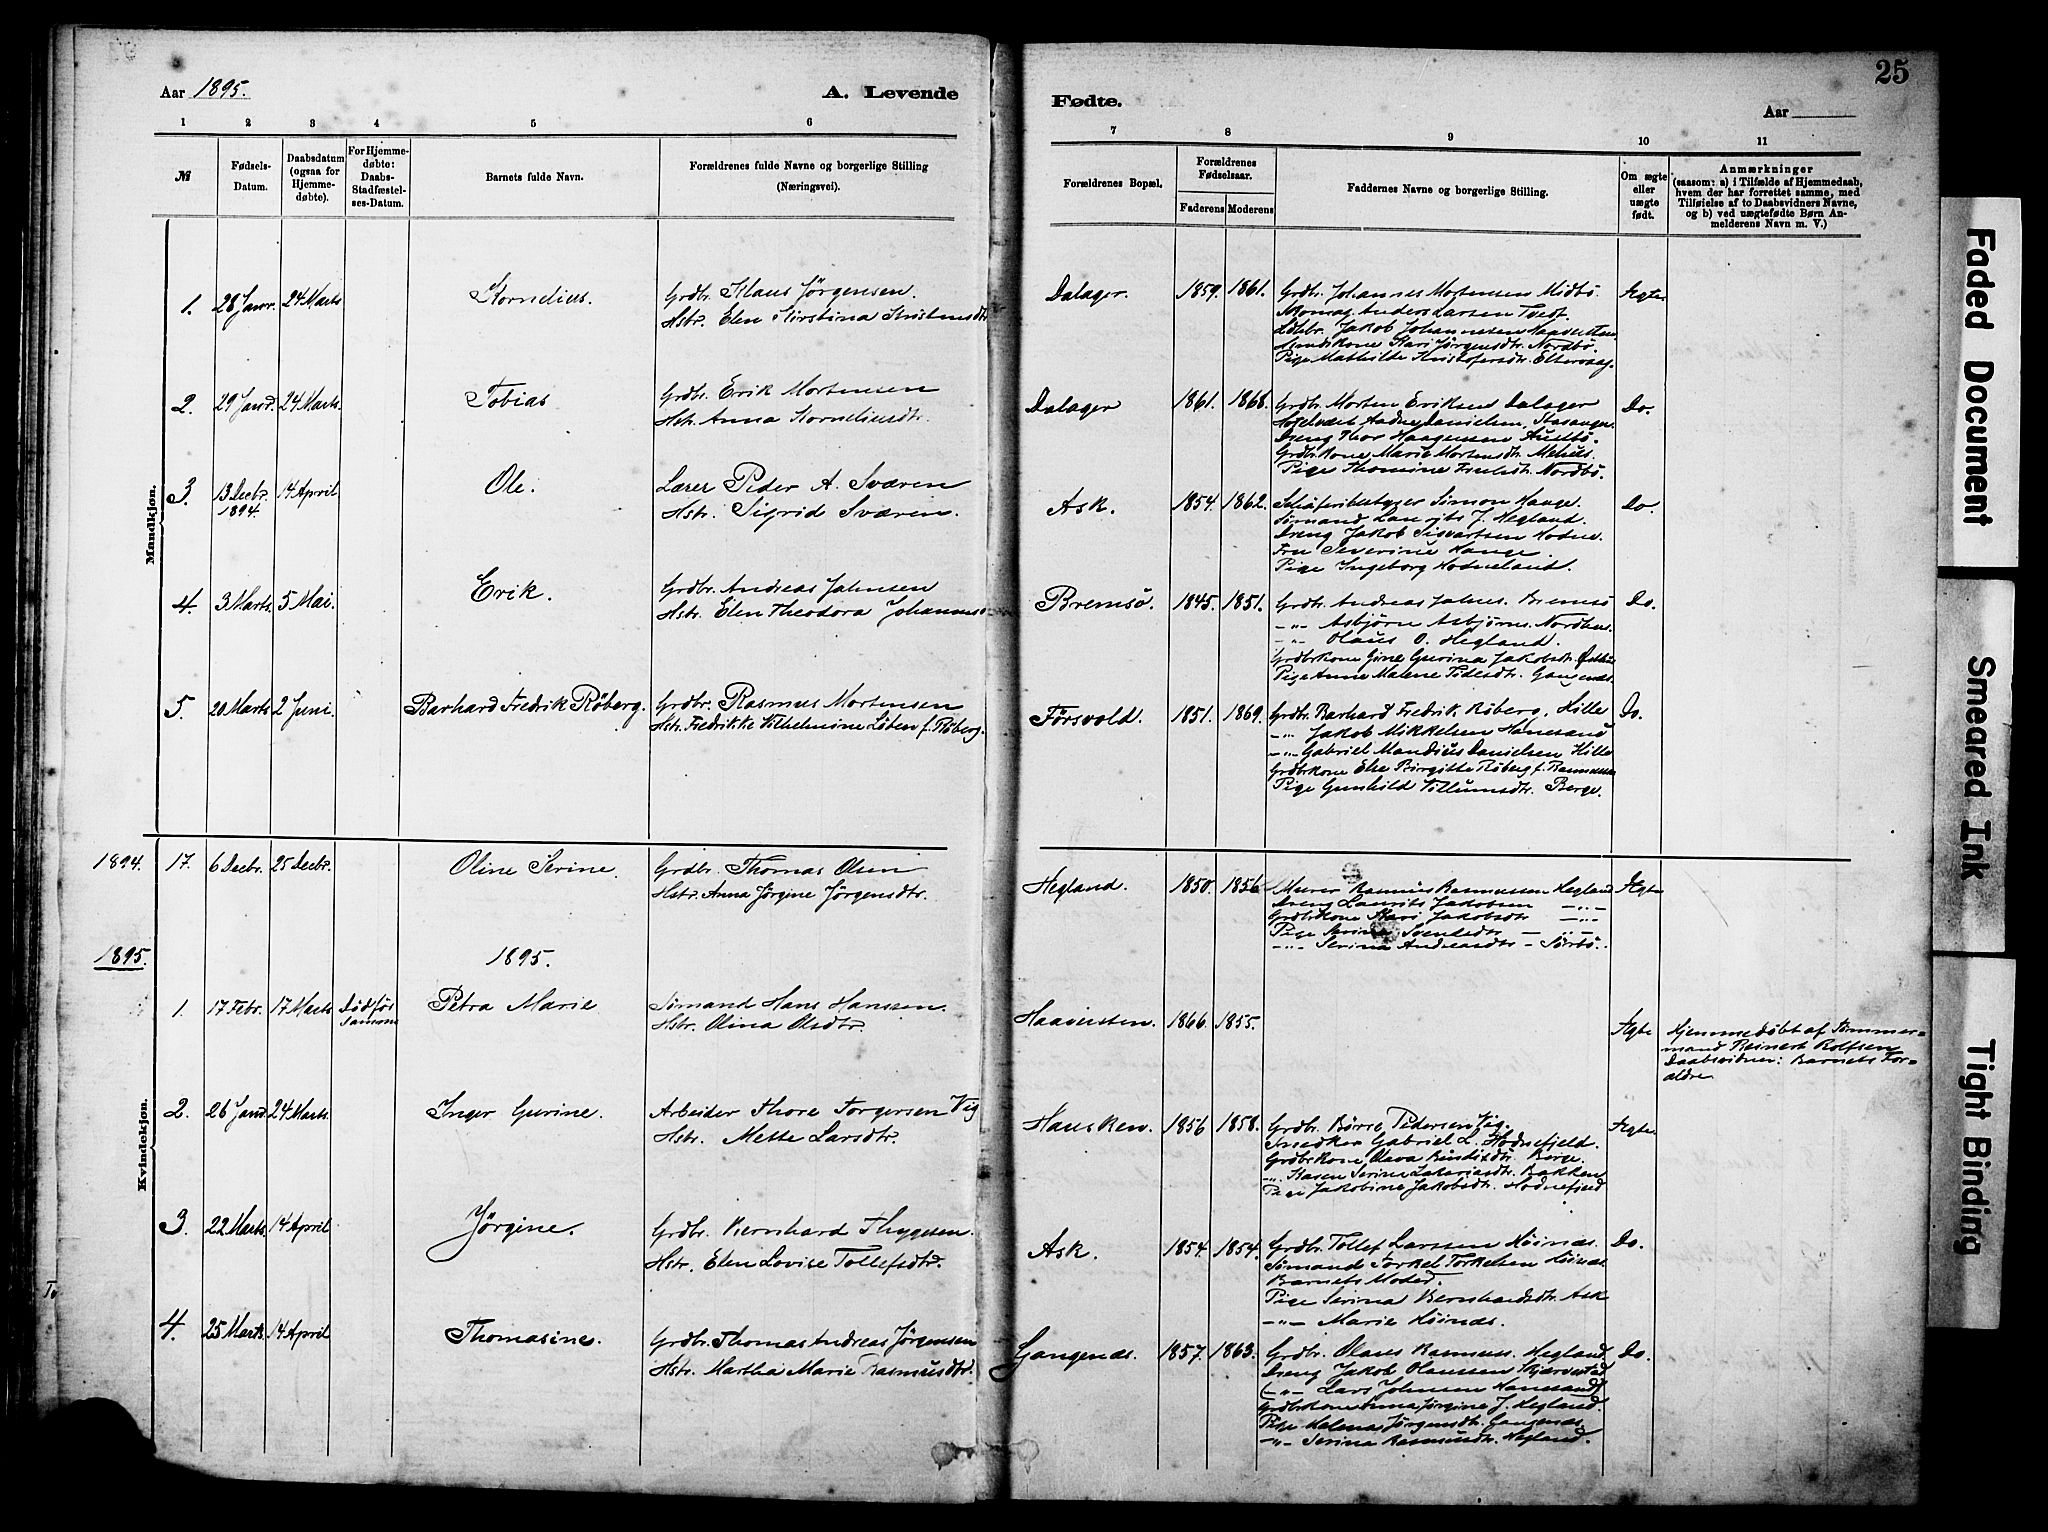 25
Aar 1895. A. Levende Fødte. Aar
1 2 3 4 5 6 7 8 9 10 11
№ Fødsels-Datum. Daabsdatum (ogsaa for Hjemmedøbte). For Hjemmedøbte: Daabs-Stadfæstelses-Datum. Barnets fulde Navn. Forældrenes fulde Navne og borgerlige Stilling (Næringsvei). Forældrenes Bopæl. Forældrenes Fødselsaar. Faderens Moderens Faddernes Navne og borgerlige Stilling. Om ægte eller uægte født. Anmærkninger (saasom: a) i Tilfælde af Hjemmedaab, hvem der har forrettet samme, med Tilføielse af to Daabsvidners Navne, og b) ved uægtefødte Børn Anmelderens Navn m. V.)
Mandkjøn.
1. 28 Janr. 24 Marts Kornelius. Grdbr. Klaus Jørgensen. Dalager. 1859. 1861. Grdbr. Johannes Mortensen Midbö. Ægte
Hstr. Elen Kirstina Kristensdtr
Skomag. Anders Larsen Tvedt.
Jakob Johannesen Haavesten
Kari Jørgensdtr. Nordbö.
Pige Mathilde Kristofersdtr. Eltervaag.
2. 29 Janr. 24 Marts. Tobias Grdbr. Erik Mortensen Dalager 1861. 1868. Grdbr. Morten Eriksen Dalager Do.
Hstr. Anna Korneliusdtr.
Hotelvært Aadne Danielsen, Stavanger.
Dreng Thor Haagensen Austbö.
Grdbr.kone Marie Mortensdtr. Meluls.
Pige Thomine Nordbö.
3 13 Decbr. 1894. 14 April Ole. Lærer Peder A. Sværen Ask. 1854. 1862. Simon Hauge. Do.
Hstr. Sigrid Sværen.
Sømand Lauritz J. Hegland.
Dreng Jakob Sivertsen Hodne.
Fru Severine Hauge.
Pige Ingeborg Hodneland.
4. 3 Marts. 5 Mai. Erik. Grdbr. Andreas Johnsen Bremsö. 1845. 1851. Grdbr. Andreas Johns. Bremsö Do.
Hstr. Elen Theodora Johannes
-"- Asbjørn Asbjörns. Nordhus.
-"- Olaus O. Hegland.
Grdbrkone Gine Gurina Jakobsdtr.
Pige Anne Malene Gangenæs.
5. 20 Marts 2 Juni. Barhard Fredrik Röberg. Grdbr. Rasmus Mortensen Försvold. 1851. 1869. Grdbr. Barhard Fredrik Röberg, Hille Do.
Hstr. Fredrikke Vilhelmine Löben f. Röberg.
-"- Jakob Mikkelsen Hanesand
-"- Gabriel Mandius Danielsen Hille
Grdbrkone Else Birgitte Röberg f. Rasmussen
Pige Gunhild Tillumsdtr. Berge.
Kvindekjøn.
1894. 17. 6 Decbr. 25 Decbr. Oline Serine. Grdbr. Thomas Olsen Hegland. 1850. 1856 Murer Rasmus Rasmussen Hegland Ægte
Hstr. Anna Jørgine Jørgensdtr.
Dreng Laurits Jakobsen -"-
Grdbrkone Kari Jakobsdtr -"-
Pige Serina Svendsdtr -"-
-"- Serina Andreasdtr - Sörbö.
1895. 1895.
1. 17 Febr. 17 Marts Død før samme Petra Marie Sømand Hans Hanssen. Haavesten. 1866. 1855. Ægte Hjemmedøbt af Tømmer-
Hstr. Olina Olsdtr.
mand Reinert Rolfsen
Daabsvidner: Barnets For-
ældre
2. 26 Janr. 24 Marts. Inger Gurine. Arbeider Thore Torgersen Vig Hausken. 1856 1858. Grdbr. Börre Pedersen Vig. Ægte
Hstr. Mette Larsdtr.
Snedker Gabriel L. Hodnefjeld.
Grdbrkone Olava Berge.
-"- Karen Serine Zakariasdtr. Bakken
Pige Jakobine Jakobsdtr. Hodnefjeld
3. 22 Marts. 14 April Jørgine. Grdbr. Bernhard Thygesen. Ask. 1854. 1854. Grdbr. Tollef Larssen Höinæs. Do.
Hstr. Elen Lovise Tollefsdtr.
Sømand Torkel Torkelsen Höinæs
Barnets Moder.
Pige Serina Bernhardsdtr. Ask
-"- Marie Höinæs.
4. 25 Marts. 14 April Thomasine. Grdbr. Thomas Andreas Jørgensen Gangenæs. 1857. 1863. Grdbr. Olaus Rasmus. Hegland Do.
Hstr. Martha Marie Rasmusdtr.
Dreng Jakob Olaussen Skjærvestad
-"- Lars Johnsen Hanesand
Grdbrkone Anna Jørgine J. Hegland.
Pige Helena Jørgensdtr. Gangenæs
-"- Serina Rasmusdtr. Hegland.
Faded Document
Smeared Ink
Tight Binding